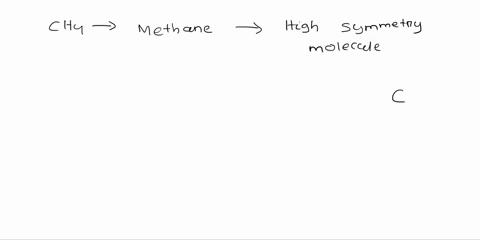 CH4 → Methane → High symmetry
molecule
C